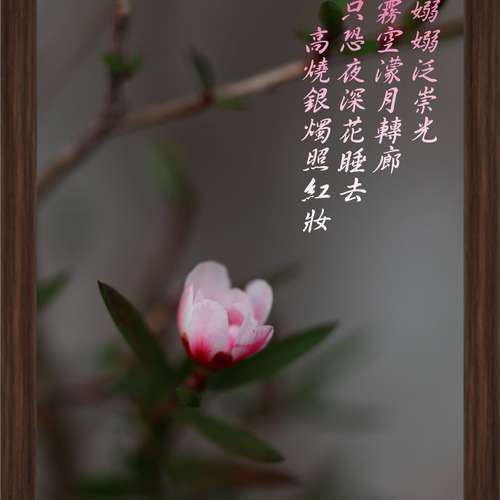 嫋嫋泛崇光
霧空濛月轉廊
只恐夜深花睡去
高燒銀燭照紅妝